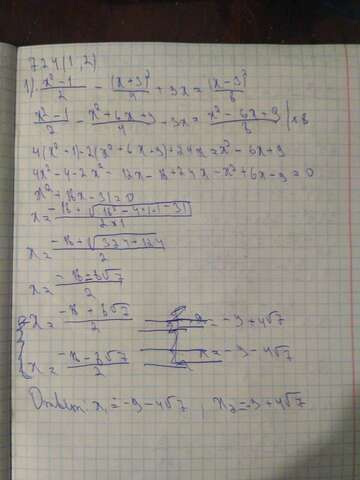 724(1,2)
1) x²-1/2 - (x+3)²/4 + 3x = (x-3)²/8
x²-1/2 - x²+6x+9/4 + 3x = x²-6x+9/8 | ×8
4(x²-1)-2(x²+6x+9)+24x=x²-6x+9
4x²-4-2x²-12x-18+24x-x²+6x-9=0
x²+18x-31=0
x=-18±√18²-4·1·(-31)/2×1
x=-18±√324+124/2
x=-18±8√7/2
x=-18+8√7/2 x=-9+4√7
x=-18-8√7/2 x=-9-4√7
Ответ: x₁=-9-4√7, x₂=-9+4√7